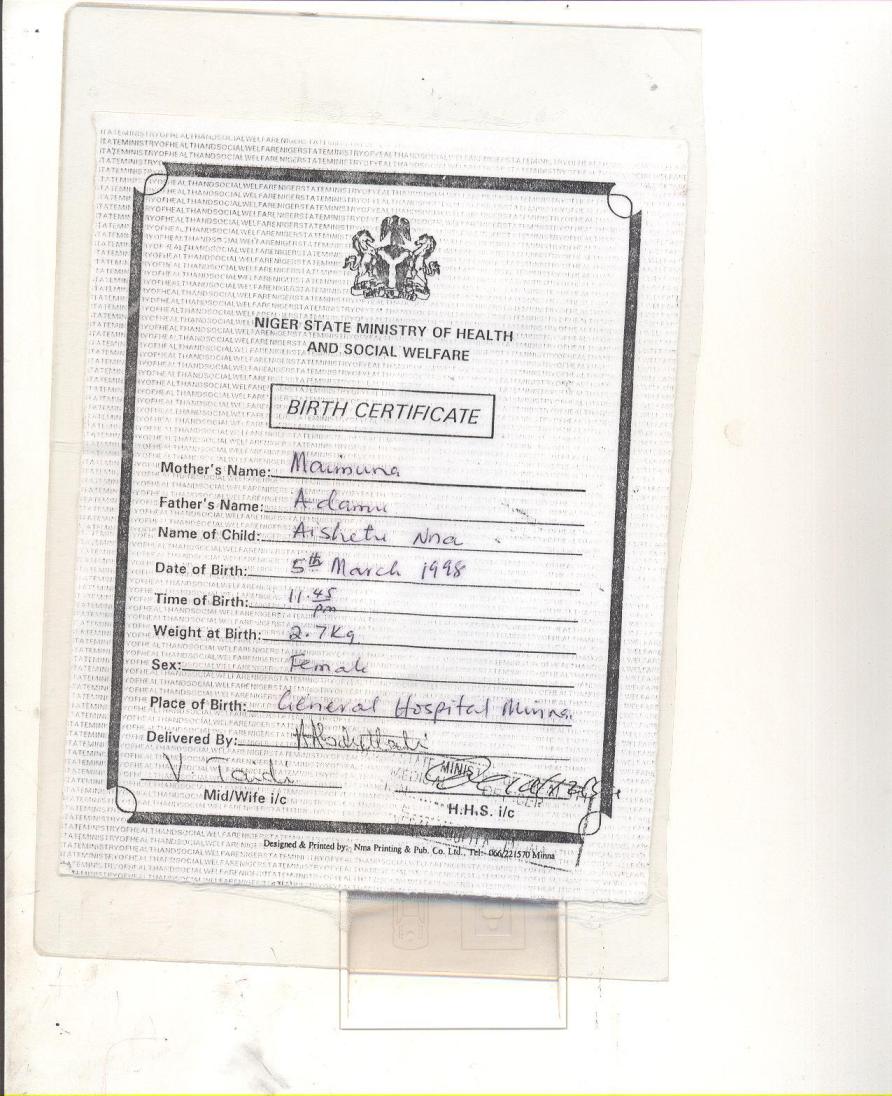 NIGER STATE MINISTRY OF HEALTH
AND SOCIAL WELFARE
BIRTH CERTIFICATE
Mother's Name: Maimuna
Father's Name: Adamu
Name of Child: Aishetu Nna
Date of Birth: 5th March 1998
Time of Birth: 11.45 pm
Weight at Birth: 2.7Kg
Sex: Female
Place of Birth: General Hospital Minna.
Delivered By:
V. Taidi
Mid/Wife i/c
H.H.S. i/c
Designed & Printed by:- Nma Printing & Pub. Co. Ltd., Tel:- 066/221570 Minna